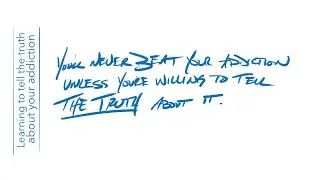 Learning to tell the truth
about your addiction
YOU'LL NEVER BEAT YOUR ADDICTION
UNLESS YOU'RE WILLING TO TELL
THE TRUTH ABOUT IT.